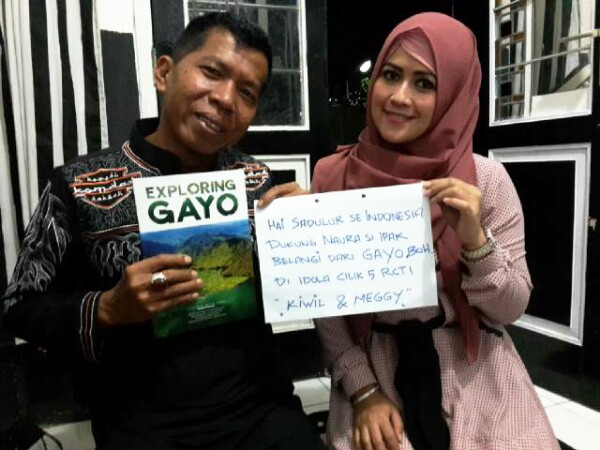 EXPLORING
GAYO
HAI SADULUR SE INDONESIA!
DUKUNG NAURA SI IPAK
BELANGI DARI GAYO, BOH.
DI IDOLA CILIK 5 RCTI
"KIWIL & MEGGY"